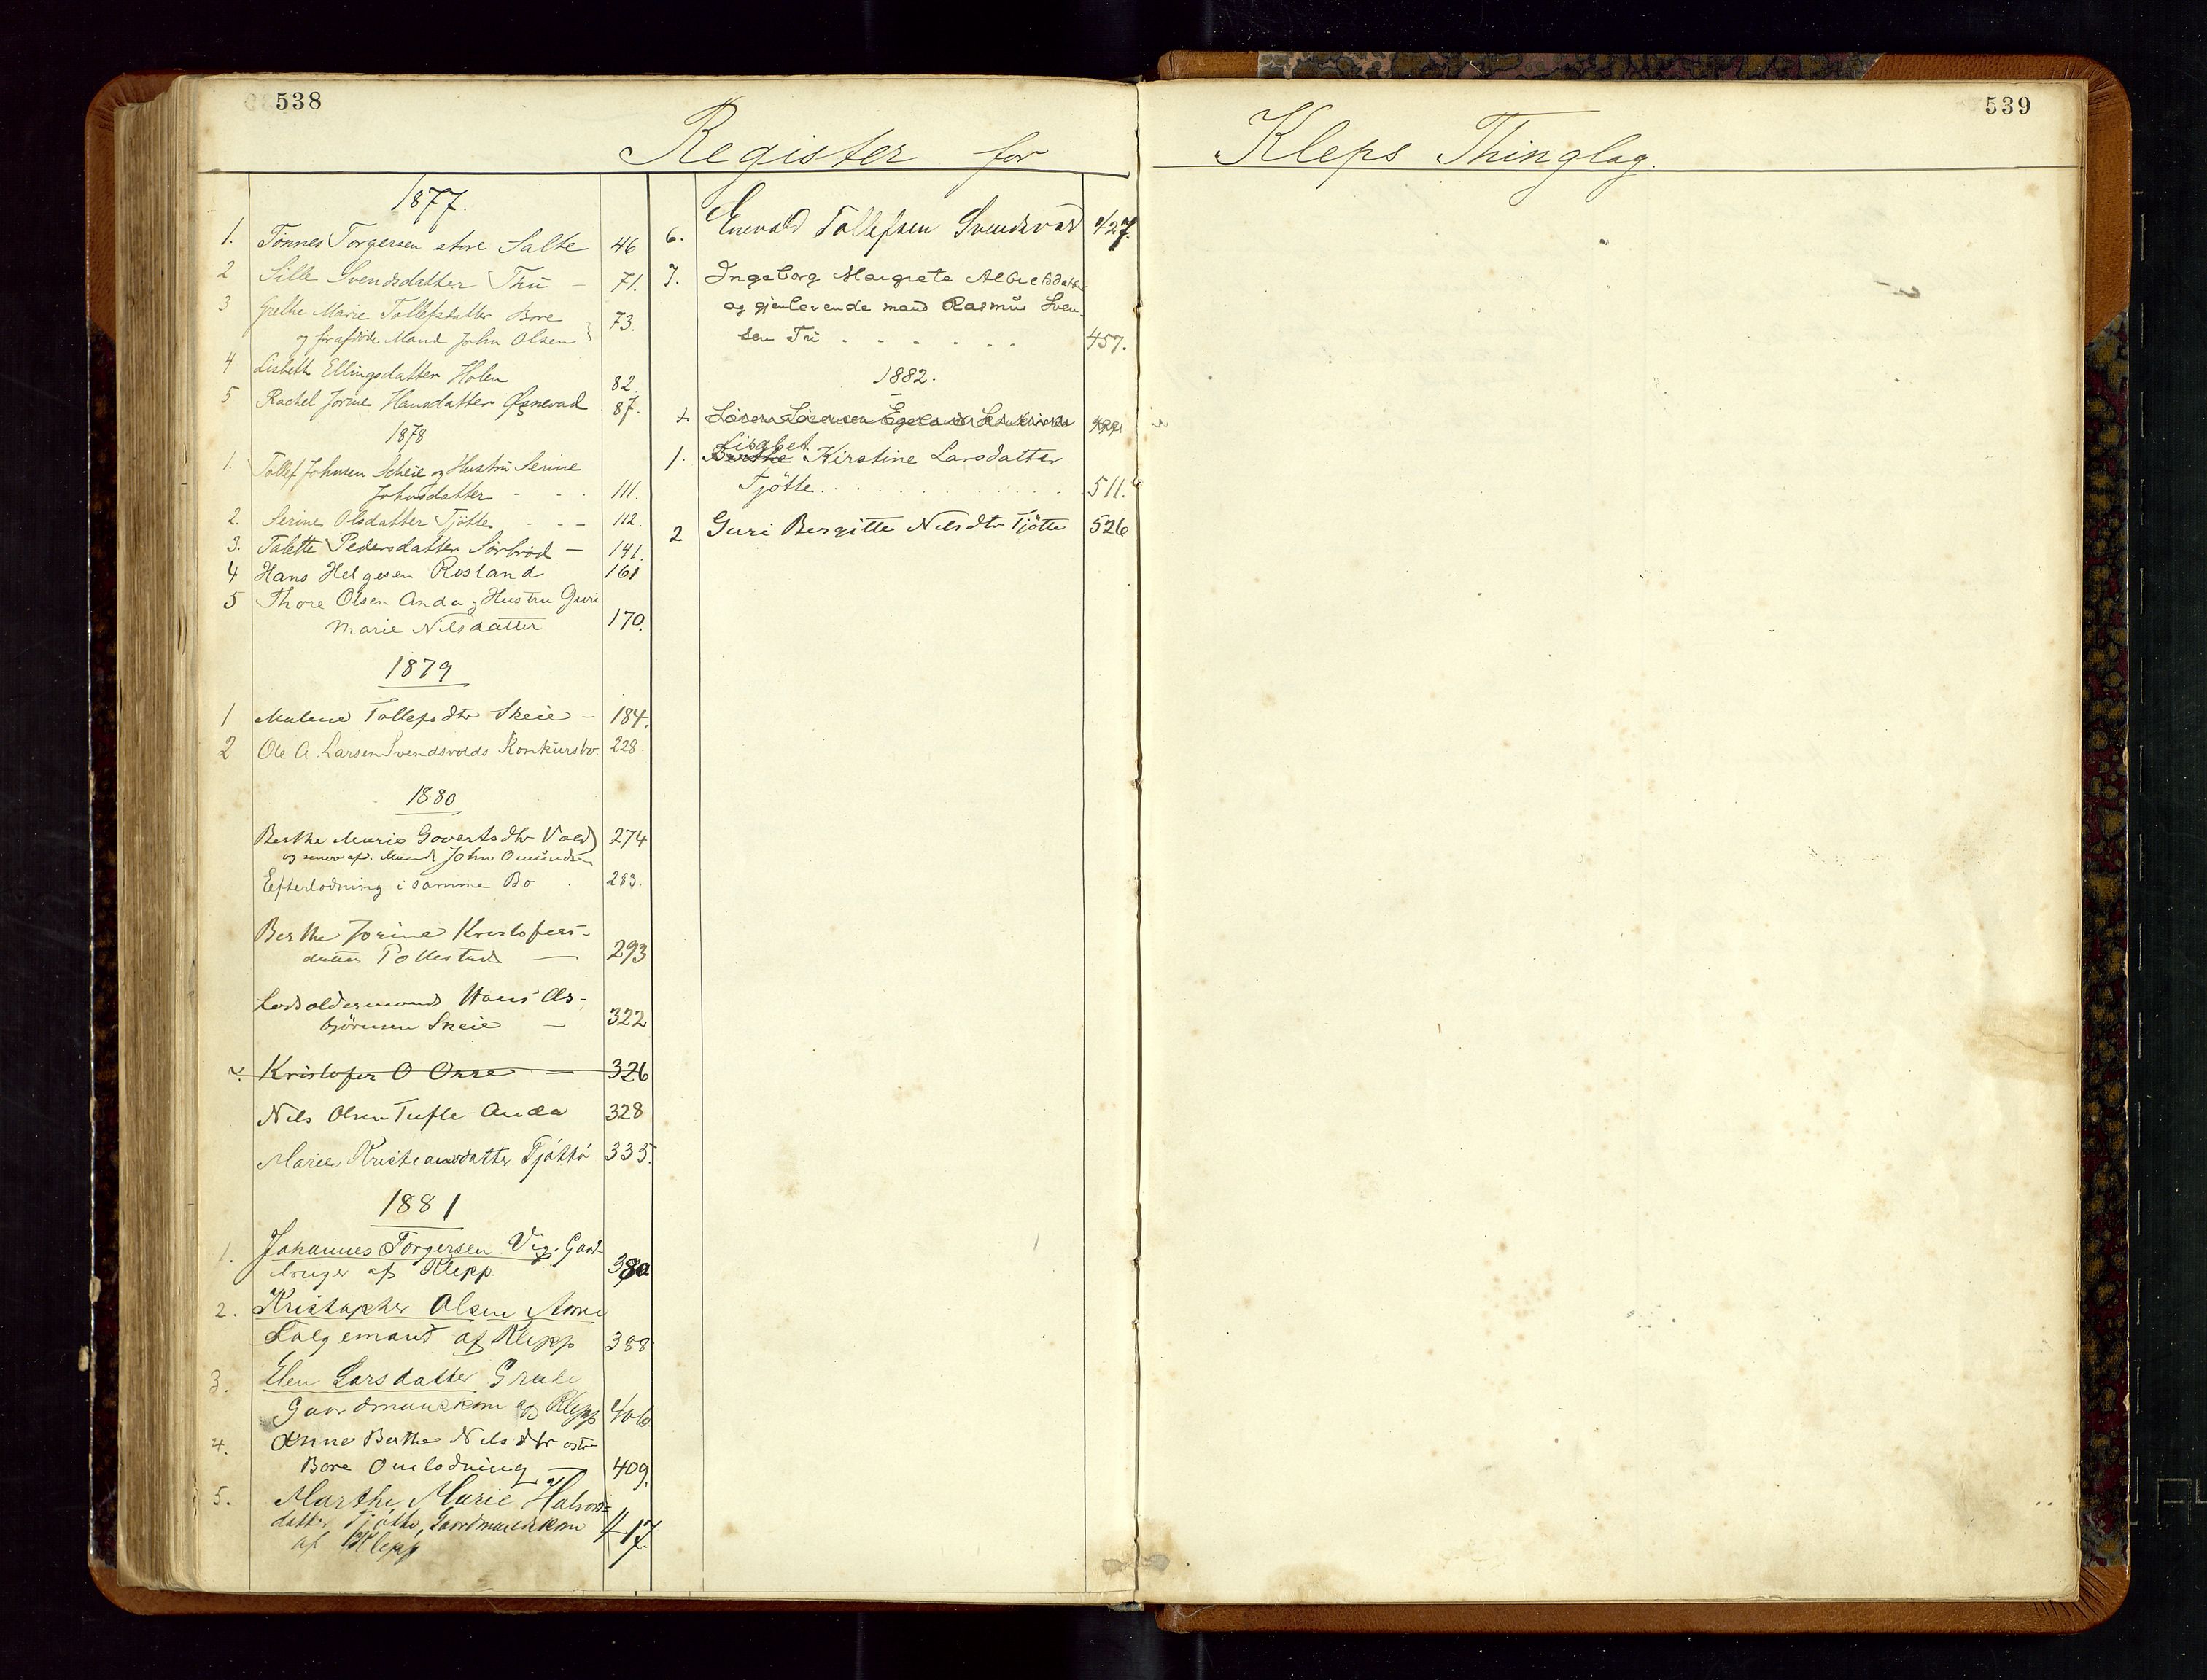 538
Register for
1877.
1. Tönnes Torgersen store Salte 46
2 Sille Svendsdatter Thu - 71.
3 Grethe Marie Tollefsdatter Bore
og forafdöde Mand John Olsen } 73.
4 Lisbeth Ellingsdatter Holen 82.
5 Rachel Jorine Hansdatter Öxnevad 87.
1878
1. Tollef Johnsen Scheie og Hustru Serine
Johnsdatter - - - 111.
2. Serine Olsdatter Tjötte - - - 112.
3. Talette Pedersdatter Sörbröd - 141.
4 Hans Helgesen Rosland 161
5 Thore Olsen Anda og Hustru Guri
Marie Nilsdatter 170.
1879
1 Malene Tollefsdtr Skeie - 184.
2 Ole A. Larsen Svendsvolds Konkursbo. 228.
1880
Berthe Marie Govertsdtr Vold) 274
og senere afd. Mand John Omundsen
Efterlodning i samme Bo . 283.
Berthe Jorine Kristofers-
datter Pollestad — 293
Lodsoldermand Hans As-
björnsen Skeie — 322
Kristofer O Orre — 326
Nils Olsen Tufle Anda 328
Maren Kristiansdatter Tjöttö 335.
1881
1. Johannes Torgersen Vig. Gaard-
bruger af Klepp. 380
2. Kristopher Olsen
Folgemand af Klepp 388
3. Elen Larsdatter Grude
Gaardmandskone af Klepp 406
4. Anne Berthe Nilsdtr östr
Bore Omlodning — 409.
5. Marthe Marie Halvors=
datter Tjötto, Gaardmandskone
af Klepp 417.
6. Enevald Tollefsen Svendsvold 427.
7. Ingeborg Margrete Albretsdatter
og gjenlevende mand Rasmus Sven-
sen Tu . . . . . . 457.
1882.
Sören Sörensen Egeland
1. Lisabet
Berthe Kirstine Larsdatter
Tjötte. . . . . . . . . . . 511.
2 Guri Bergitte Nilsdtr Tjötte 526
539
Kleps Thinglag.